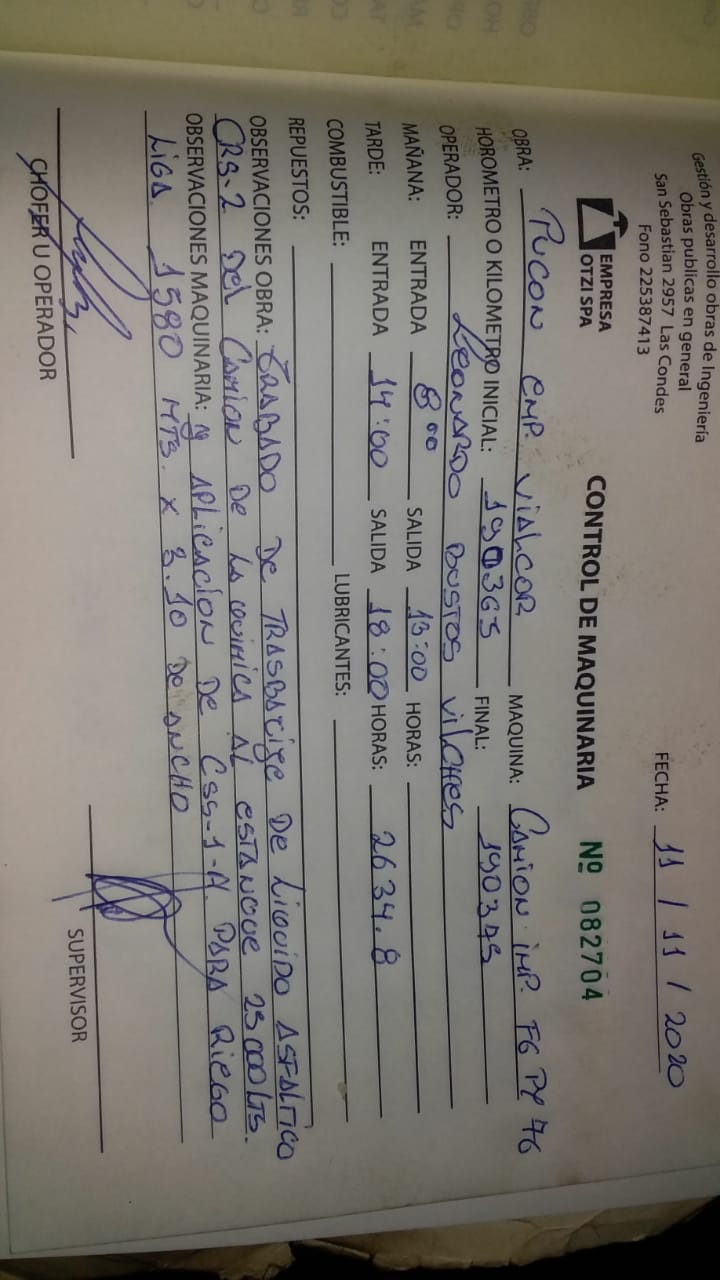 Gestión y desarrollo obras de Ingeniería
Obras publicas en general
San Sebastian 2957 Las Condes
Fono 225387413
FECHA: 11 / 11 / 2020
EMPRESA
OTZI SPA
CONTROL DE MAQUINARIA Nº 082704
OBRA: PUCON EMP. VIALCOR MAQUINA: CAMION IMP. FG PY 76
HOROMETRO O KILOMETRO INICIAL: 190365 FINAL: 190375
OPERADOR: LEONARDO BUSTOS VILCHES
MAÑANA: ENTRADA 8 00 SALIDA 13:00 HORAS:
TARDE: ENTRADA 14:00 SALIDA 18:00 HORAS: 2634.8
COMBUSTIBLE: LUBRICANTES:
REPUESTOS:
OBSERVACIONES OBRA: TRABADO DE TRASBACIJE DE LIQUIDO ASFALTICO
CRS-2 DEL CAMION DE LA QUIMICA AL ESTANQUE 25000 LTS.
OBSERVACIONES MAQUINARIA: y APLICACION DE CSS-1-H. PARA RIEGO
LIGA. 1580 MTS. X 3.10 DE ANCHO
CHOFER U OPERADOR
SUPERVISOR